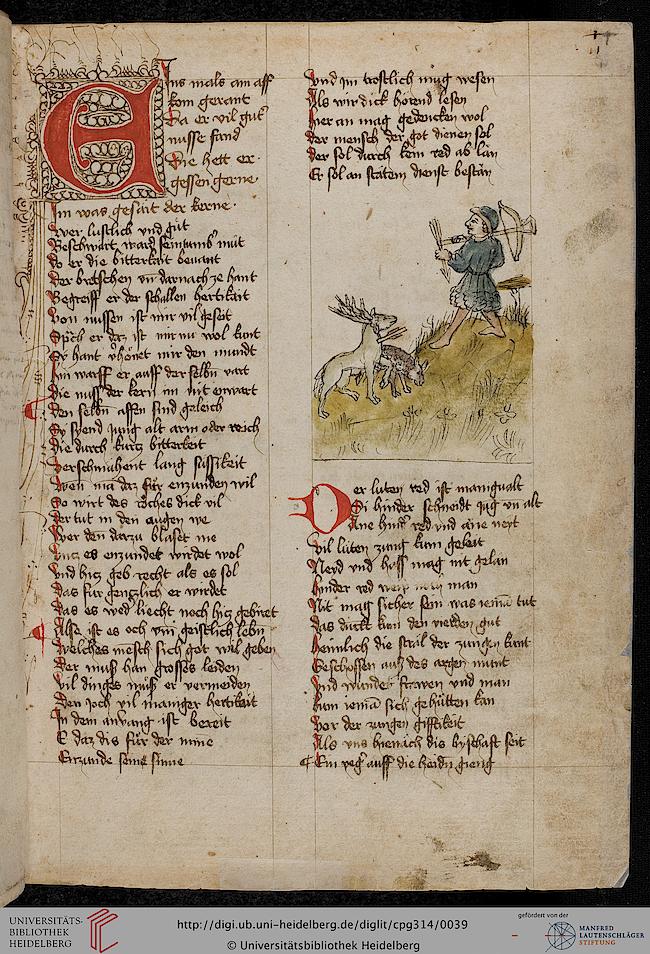 Eins mals am aff
kom gerant
Da er vil gut
nusse fand
Die hett er
gessen gerne
Im was geseit der kerne
wer lustlich vnd gut
Beschwart ward sein mut
Do er die bitterkait bevant
Der bretschen vn darnach ze hant
Begreiff er der schallen hertikait
Von nussen ist mir vil geseit
Sprch er daz ist mir nu wol kunt
Sy hant vhönet mir den mundt
Im warff er auff der selbn vart
Die nuss der kern im nit enwart
Den selbn affen sind geleich
Sy syend jung alt arm oder reich
Die durch kurtz bitterkeit
Verschmahent lang sussikeit
Wen ma daz für enzunden wil
So wirt des roches dick vil
der tut in den augen we
Wer den darzu blaset me
vntz es enzundet wirdet wol
vnd hitz geb recht als es sol
das für gentzlich er wirdet
das es wed liecht noch hitz gebiret
Also ist es och vm geistlich lebn
Welches mesch sich got wil geben
Der muss han grosses leiden
vil dinges muss er vermeiden
Den joch vil maniger hertikait
In dem anvang ist bereit
E daz dis für der mine
Enzunde seine sinne
vnd im trostlich mug wesen
Als wir dick hörend lesen
hier an mag gedencken wol
der mensch der got dienen sol
der sol durch kein red ab lan
Er sol an stätem dienst bestan
Der luten red ist manigualt
Si hinder schneidt jug vn alt
Ane hind red vnd ane neyt
vil lüten zung kum geleit
Neyd vnd hass mag nit gelan
hinder red man
Nit mag sicher sein was iema tut
das dückt kum den vielden gut
heimlich die stral der zungen kunt
Geschossen auss des argen munt
vnd wundet frawen vnd man
kum iema sich gehütten kan
vor der zungen gifftikeit
Als vns hienach dis byschaft seit
Ein jeger auff die heidn gieng
UNIVERSITÄTS-
BIBLIOTHEK
HEIDELBERG
http://digi.ub.uni-heidelberg.de/diglit/cpg314/0039
© Universitätsbibliothek Heidelberg
gefördert von der
MANFRED
LAUTENSCHLÄGER
STIFTUNG